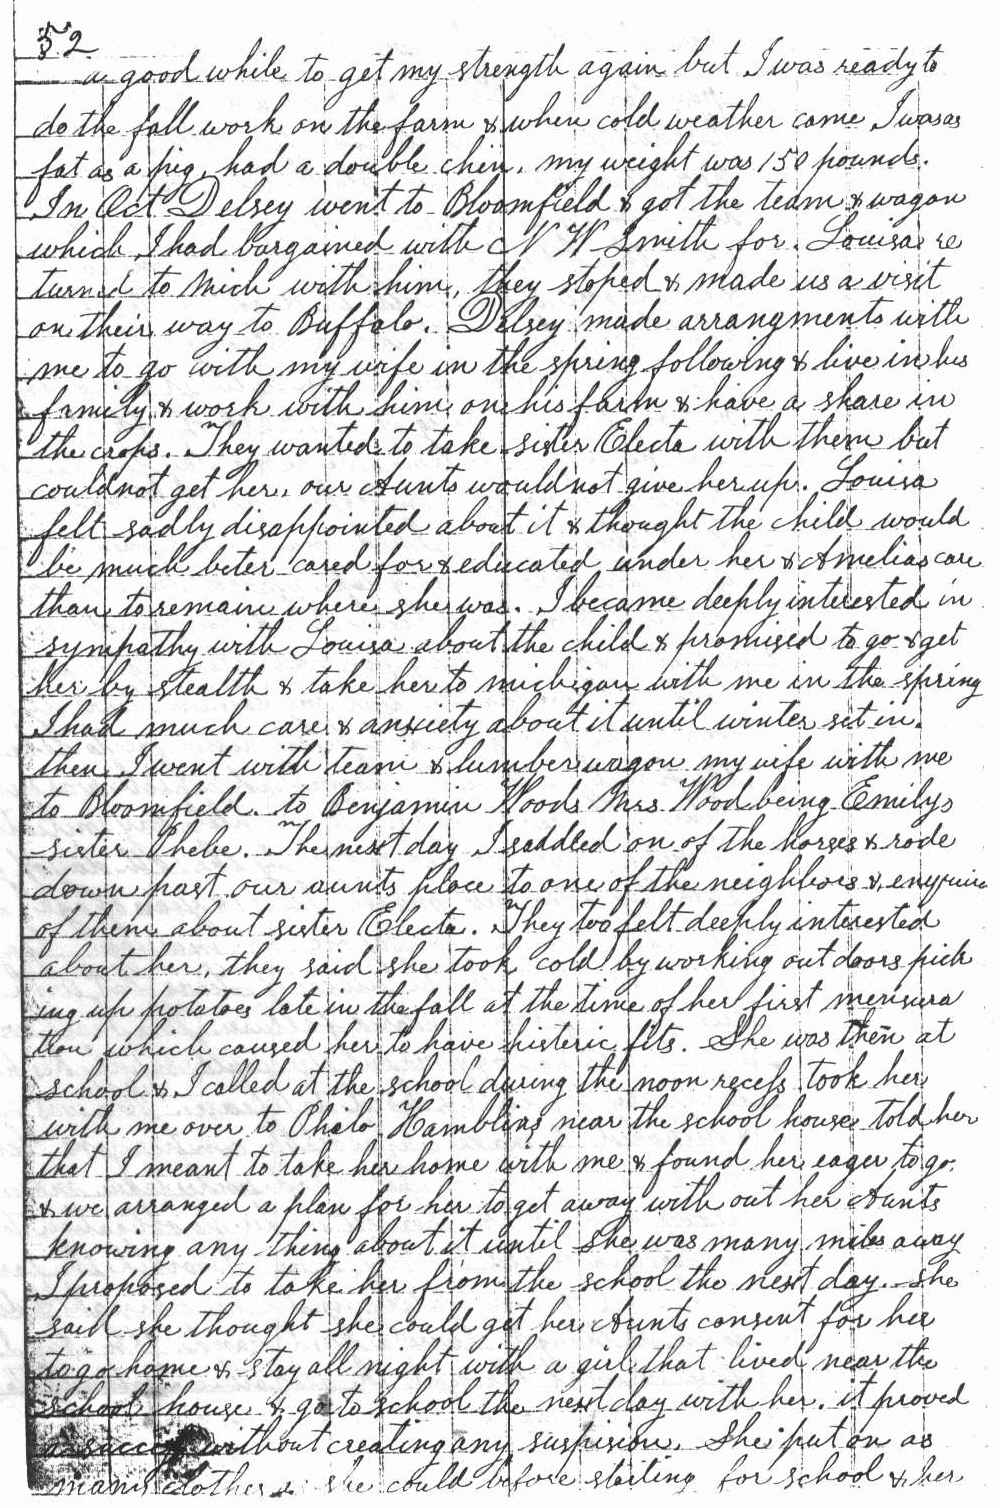 52
a good while to get my strength again but I was ready to
do the fall work on the farm & when cold weather came I was as
fat as a pig, had a double chin, my weight was 150 pounds.
In Oct Delsey went to Bloomfield & got the team & wagon
which I had bargained with N W Smith for. Louisa re
turned to Mich with him, they stoped & made us a visit
on their way to Buffalo. Delsey made arrangments with
me to go with my wife in the spring following & live in his
family & work with him on his farm & have a share in
the crops. They wanted to take sister Electa with them but
could not get her, our Aunts would not give her up. Louisa
felt sadly disappointed about it & thought the child would
be much beter cared for & educated under her & Amelias care
than to remain where she was. I became deeply interested in
sympathy with Louisa about the child & promised to go & get
her by stealth & take her to michigan with me in the spring
I had much care & anxiety about it until winter set in.
then I went with team & lumber wagon my wife with me
to Bloomfield. to Benjamin Woods Mrs Wood being Emilys
sister Phebe. The next day I saddled on of the horses & rode
down past our aunts place to one of the neighbors & enquire
of them about sister Electa. They too felt deeply interested
about her, they said she took cold by working out doors pick
ing up potatoes late in the fall at the time of her first mensura
tion which caused her to have histeric fits. She was then at
school & I called at the school during the noon recess took her
with me over to Philo Hamblins near the school house told her
that I meant to take her home with me & found her eager to go.
& we arranged a plan for her to get away with out her Aunts
knowing any thing about it until she was many miles away
I proposed to take her from the school the next day. She
said she thought she could get her Aunts consent for her
to go home & stay all night with a girl that lived near the
school house & go to school the next day with her. it proved
a success without creating any suspision. She put on as
many clothes as she could before starting for school & her